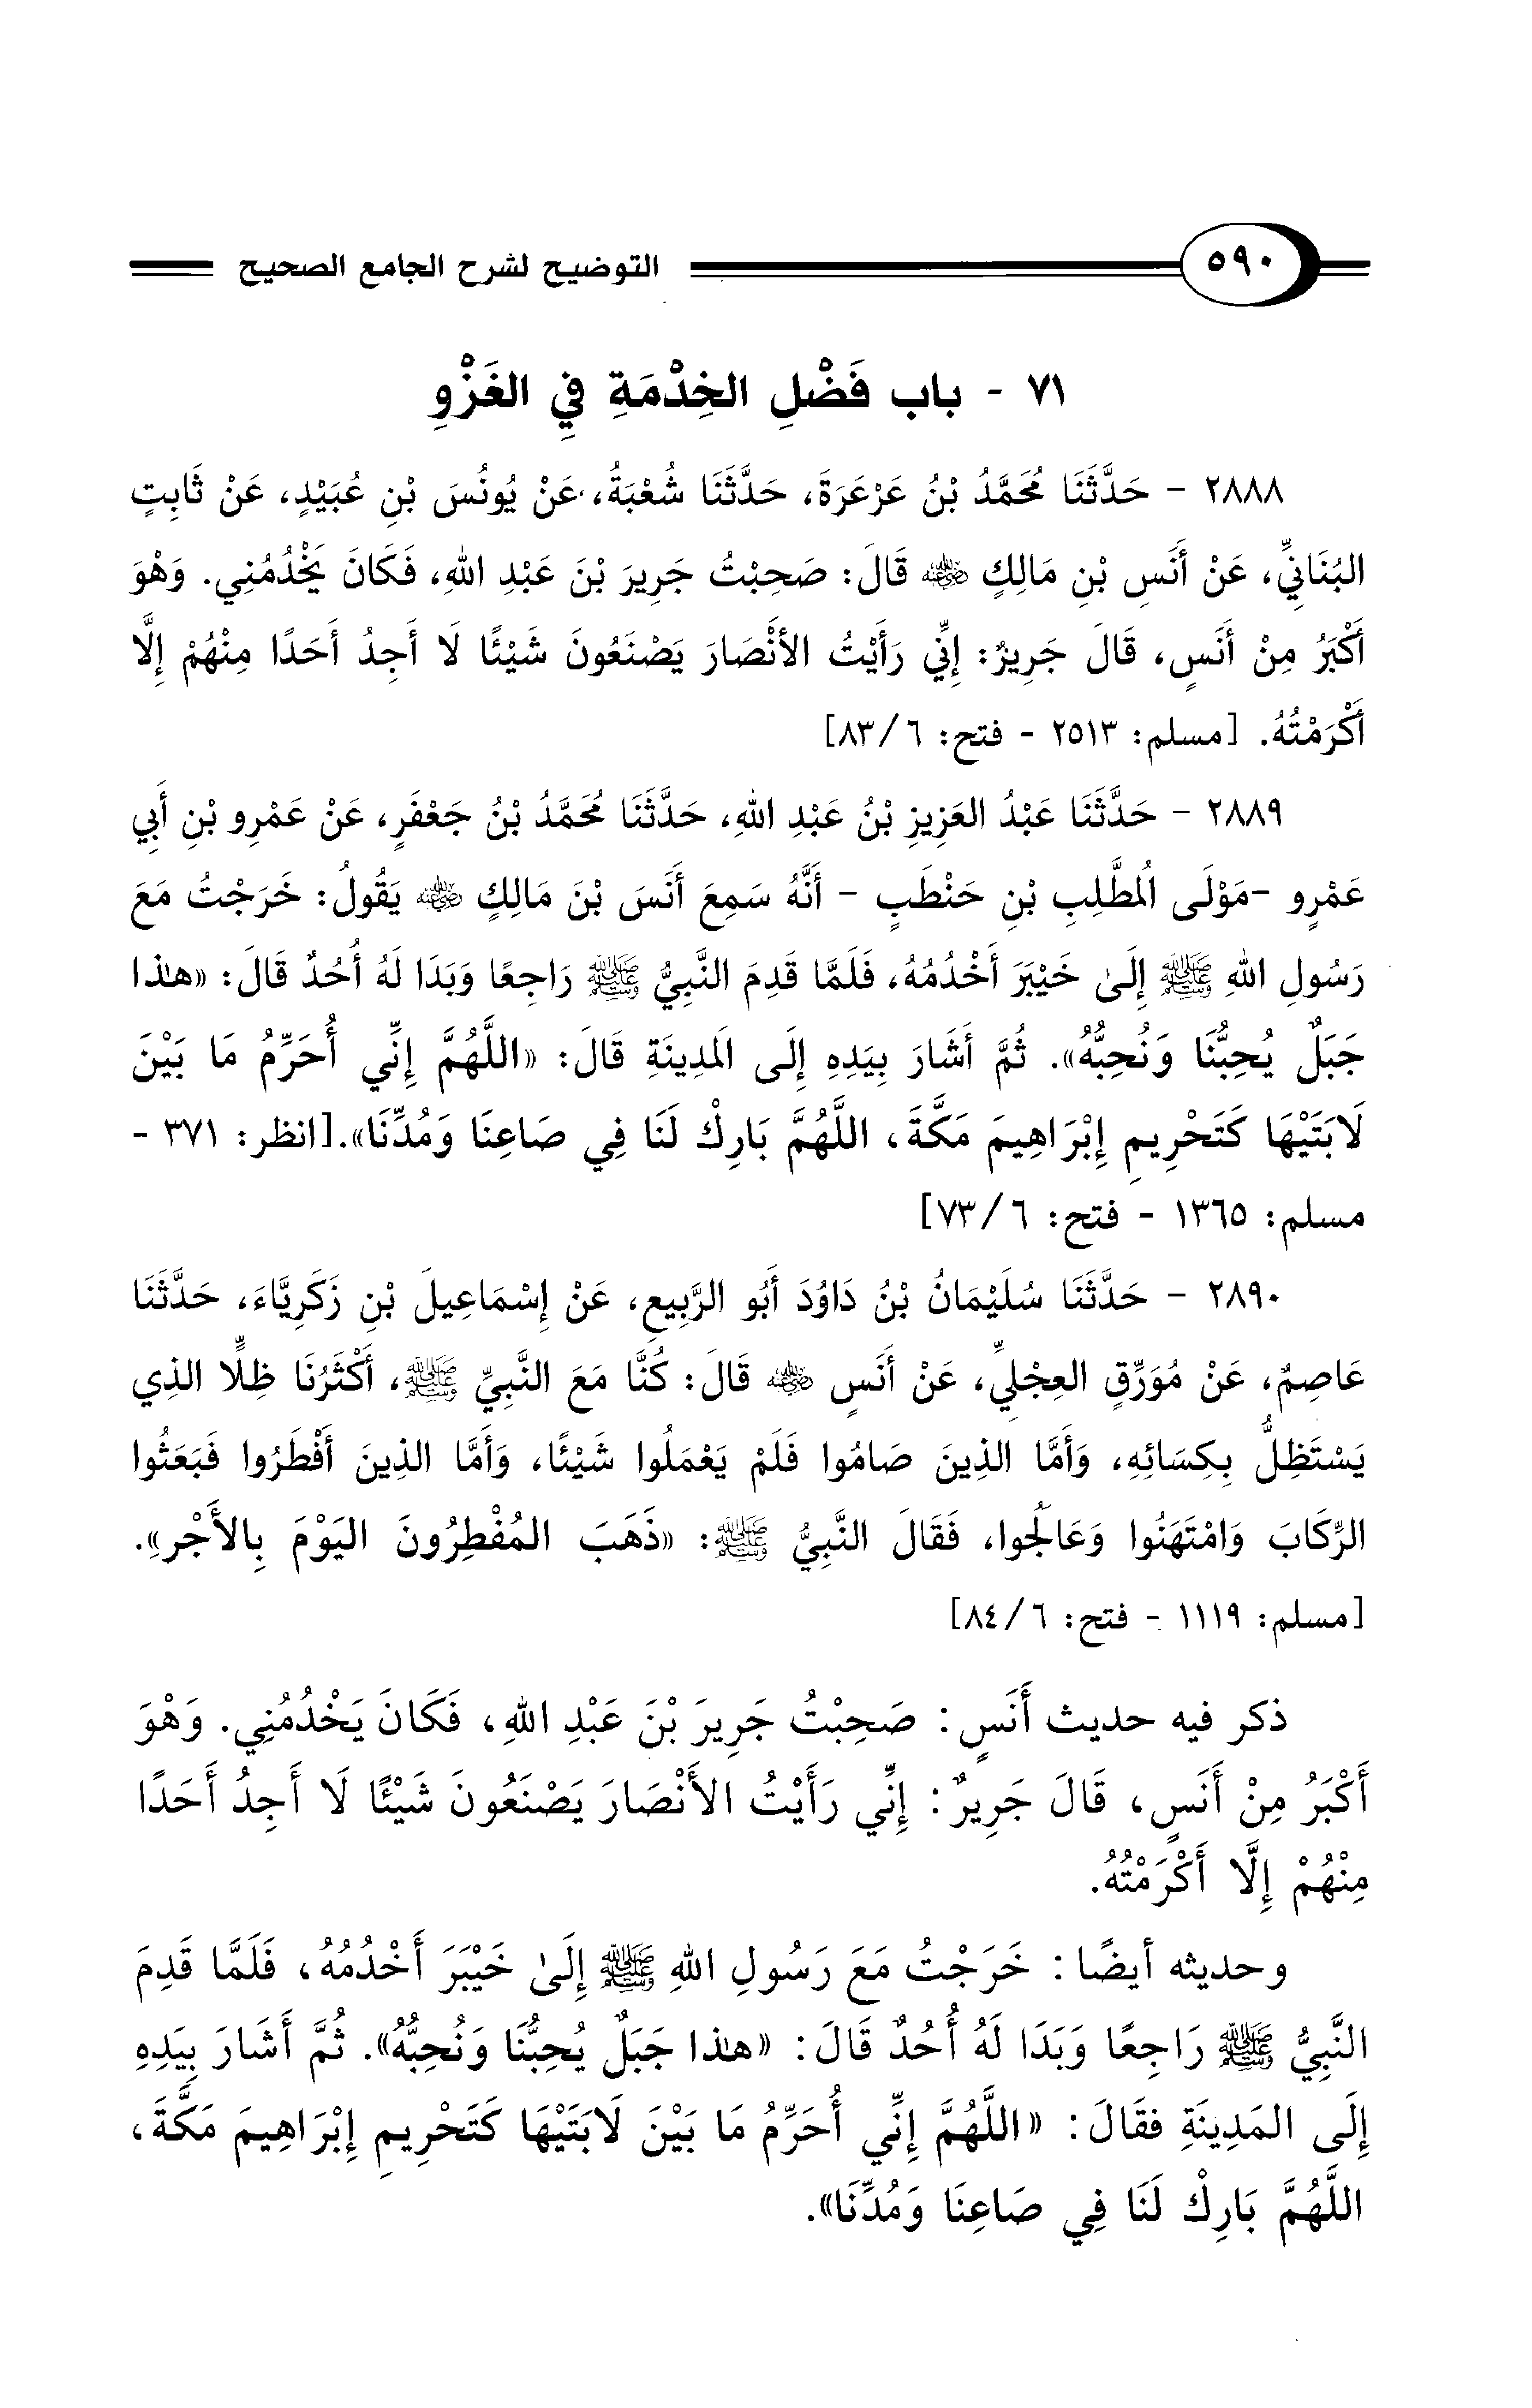 ٥٩٠ التوضيح لشرح الجامع الصحيح
٧١ - باب فَضْلِ الخِدْمَةِ فِي الغَزْوِ
٢٨٨٨ - حَدَّثَنَا مُحَمَّدُ بْنُ عَرْعَرَةَ، حَدَّثَنَا شُعْبَةُ، عَنْ يُونُسَ بْنِ عُبَيْدٍ، عَنْ ثَابِتٍ
البُنَانِيِّ، عَنْ أَنَسِ بْنِ مَالِكٍ رضي الله عنه قَالَ: صَحِبْتُ جَرِيرَ بْنَ عَبْدِ اللهِ، فَكَانَ يَخْدُمُنِي. وَهْوَ
أَكْبَرُ مِنْ أَنَسٍ، قَالَ جَرِيرٌ: إِنِّي رَأَيْتُ الأَنْصَارَ يَصْنَعُونَ شَيْئًا لَا أَجِدُ أَحَدًا مِنْهُمْ إِلَّا
أَكْرَمْتُهُ. [مسلم: ٢٥١٣ - فتح: ٦/ ٨٣]
٢٨٨٩ - حَدَّثَنَا عَبْدُ العَزِيزِ بْنُ عَبْدِ اللهِ، حَدَّثَنَا مُحَمَّدُ بْنُ جَعْفَرٍ، عَنْ عَمْرِو بْنِ أَبِي
عَمْرٍو -مَوْلَى المُطَّلِبِ بْنِ حَنْطَبٍ - أَنَّهُ سَمِعَ أَنَسَ بْنَ مَالِكٍ رضي الله عنه يَقُولُ: خَرَجْتُ مَعَ
رَسُولِ اللهِ ﷺ إِلَىٰ خَيْبَرَ أَخْدُمُهُ، فَلَمَّا قَدِمَ النَّبِيُّ ﷺ رَاجِعًا وَبَدَا لَهُ أُحُدٌ قَالَ: «هٰذا
جَبَلٌ يُحِبُّنَا وَنُحِبُّهُ». ثُمَّ أَشَارَ بِيَدِهِ إِلَى المَدِينَةِ قَالَ: «اللَّهُمَّ إِنِّي أُحَرِّمُ مَا بَيْنَ
لَابَتَيْهَا كَتَحْرِيمِ إِبْرَاهِيمَ مَكَّةَ، اللَّهُمَّ بَارِكْ لَنَا فِي صَاعِنَا وَمُدِّنَا».[انظر: ٣٧١ -
مسلم: ١٣٦٥ - فتح: ٦/ ٧٣]
٢٨٩٠ - حَدَّثَنَا سُلَيْمَانُ بْنُ دَاوُدَ أَبُو الرَّبِيعِ، عَنْ إِسْمَاعِيلَ بْنِ زَكَرِيَّاءَ، حَدَّثَنَا
عَاصِمٌ، عَنْ مُوَرِّقٍ العِجْلِيِّ، عَنْ أَنَسٍ رضي الله عنه قَالَ: كُنَّا مَعَ النَّبِيِّ ﷺ، أَكْثَرُنَا ظِلًّا الذِي
يَسْتَظِلُّ بِكِسَائِهِ، وَأَمَّا الذِينَ صَامُوا فَلَمْ يَعْمَلُوا شَيْئًا، وَأَمَّا الذِينَ أَفْطَرُوا فَبَعَثُوا
الرِّكَابَ وَامْتَهَنُوا وَعَالَجُوا، فَقَالَ النَّبِيُّ ﷺ: «ذَهَبَ المُفْطِرُونَ اليَوْمَ بِالأَجْرِ».
[مسلم: ١١١٩ - فتح: ٦/ ٨٤]
ذكر فيه حديث أَنَسٍ: صَحِبْتُ جَرِيرَ بْنَ عَبْدِ اللهِ، فَكَانَ يَخْدُمُنِي. وَهْوَ
أَكْبَرُ مِنْ أَنَسٍ، قَالَ جَرِيرٌ: إِنِّي رَأَيْتُ الأَنْصَارَ يَصْنَعُونَ شَيْئًا لَا أَجِدُ أَحَدًا
مِنْهُمْ إِلَّا أَكْرَمْتُهُ.
وحديثه أيضًا: خَرَجْتُ مَعَ رَسُولِ اللهِ ﷺ إِلَىٰ خَيْبَرَ أَخْدُمُهُ، فَلَمَّا قَدِمَ
النَّبِيُّ ﷺ رَاجِعًا وَبَدَا لَهُ أُحُدٌ قَالَ: «هٰذا جَبَلٌ يُحِبُّنَا وَنُحِبُّهُ». ثُمَّ أَشَارَ بِيَدِهِ
إِلَى المَدِينَةِ فقَالَ: «اللَّهُمَّ إِنِّي أُحَرِّمُ مَا بَيْنَ لَابَتَيْهَا كَتَحْرِيمِ إِبْرَاهِيمَ مَكَّةَ،
اللَّهُمَّ بَارِكْ لَنَا فِي صَاعِنَا وَمُدِّنَا».